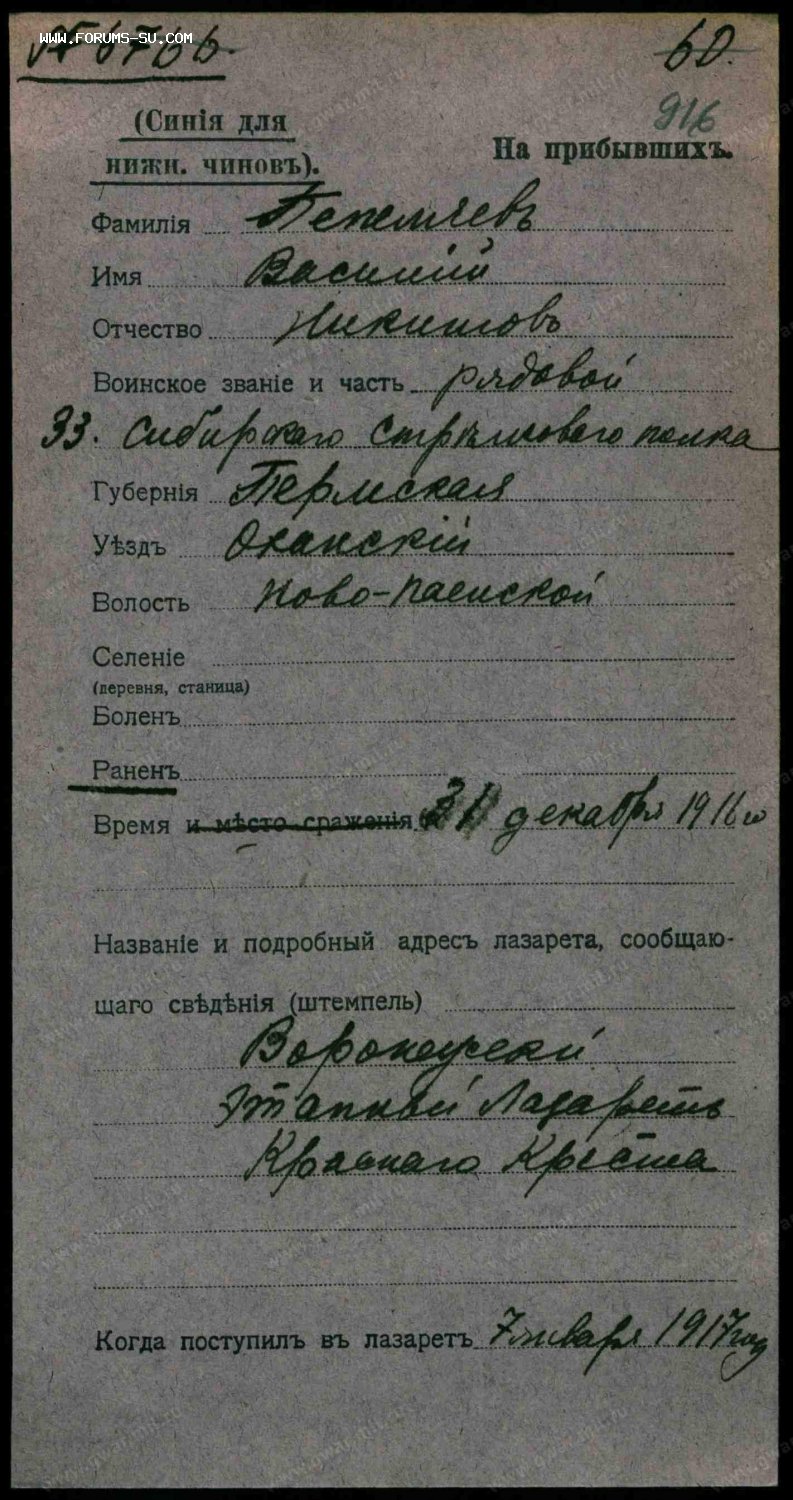 www.forums-su.com
60.
916
(Синія для
нижн. чиновъ).
На прибывшихъ.
Фамилія Пепеляевъ
Имя Василій
Отчество Никитовъ
Воинское званіе и часть рядовой
33. Сибирскаго Стрѣлковаго полка
Губернія Пермская
Уѣздъ Оханскій
Волость Ново-Паинской
Селеніе
(деревня, станица)
Боленъ
Раненъ
Время и мѣсто сраженія 31 декабря 1916 го
Названіе и подробный адресъ лазарета, сообщаю-
щаго свѣдѣнія (штемпель)
Воронежскій
Этапный Лазаретъ
Краснаго Креста
Когда поступилъ въ лазаретъ 7 января 1917 год